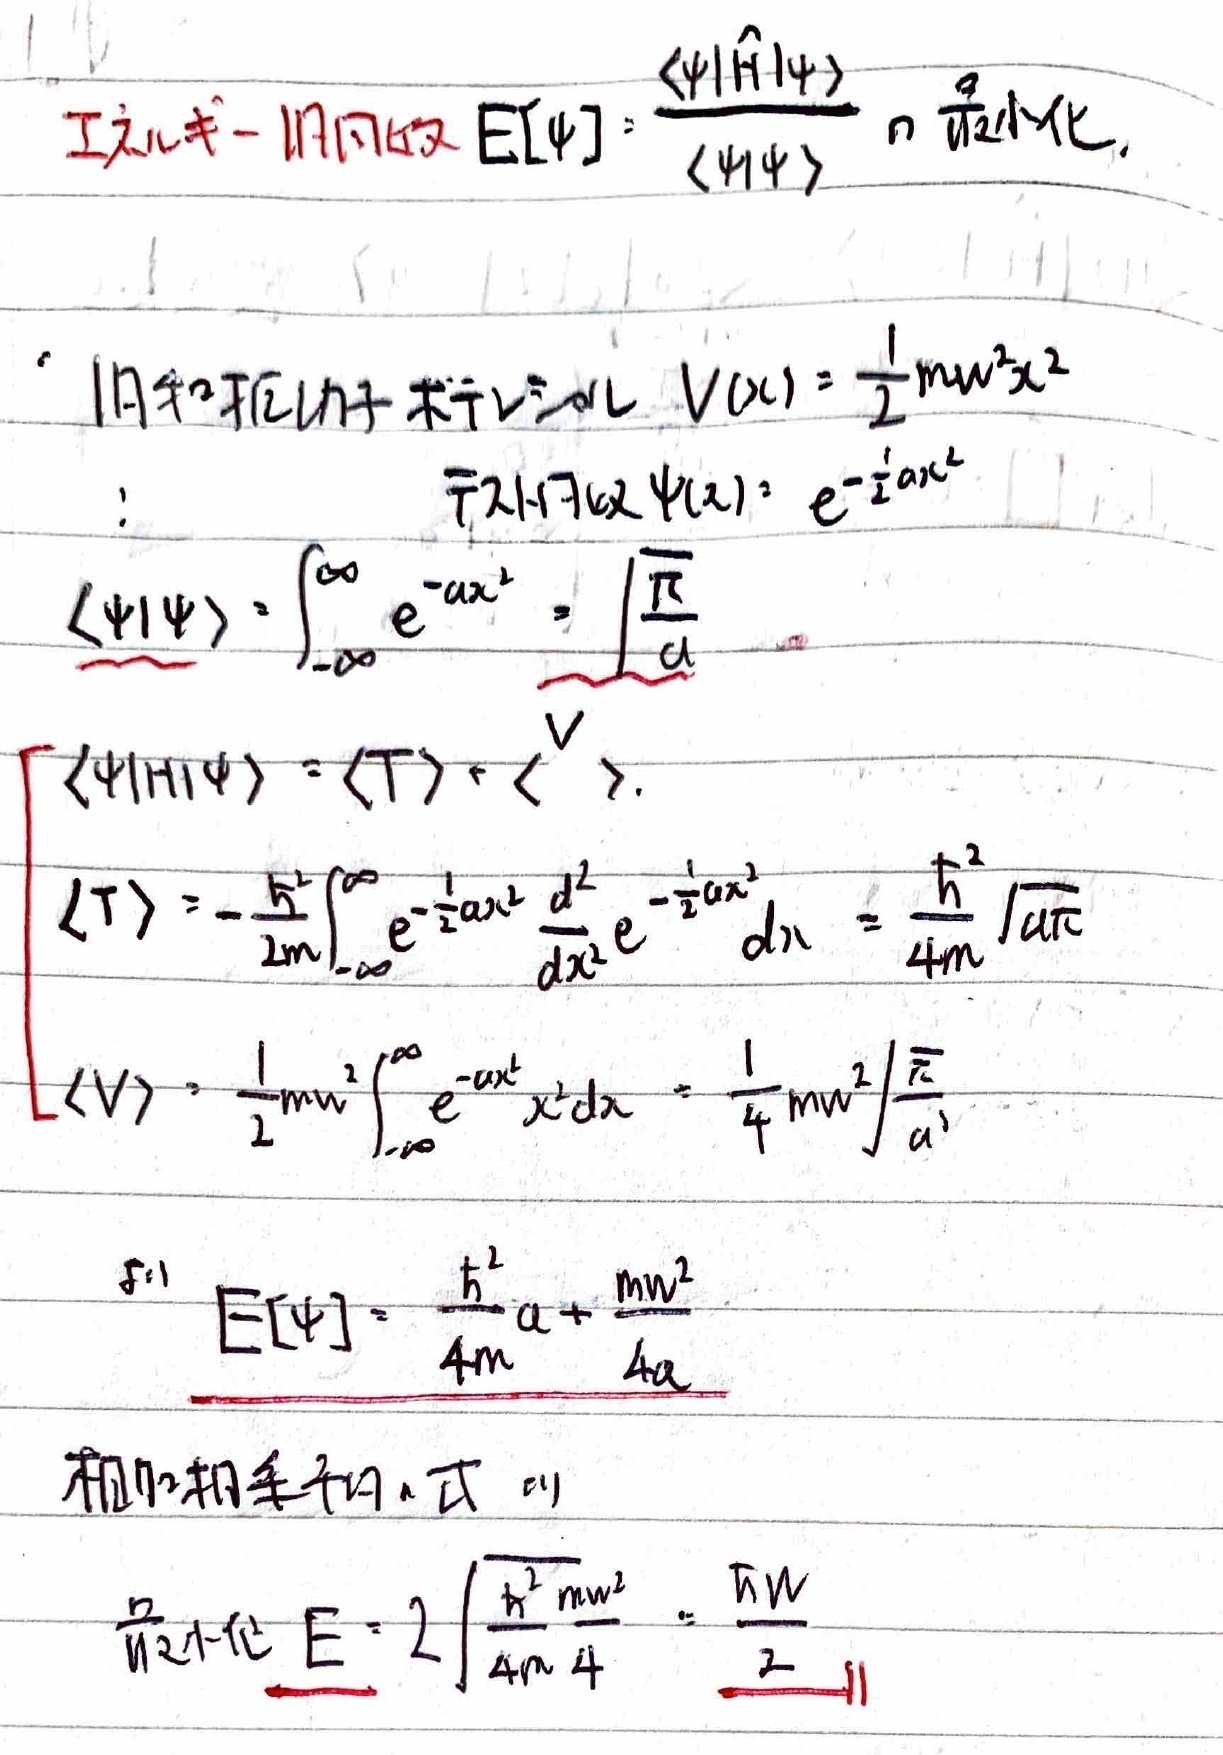 エネルギー汎関数 E[ψ] = <ψ|Ĥ|ψ> / <ψ|ψ> の最小化.
・調和振動子ポテンシャル V(x) = 1/2 mw²x²
: テスト関数 ψ(x) = e^{-1/2 ax²}
<ψ|ψ> = ∫_{-∞}^{∞} e^{-ax²} = √(π/a)
<ψ|H|ψ> = <T> + <V>.
<T> = -ħ²/2m ∫_{-∞}^{∞} e^{-1/2 ax²} d²/dx² e^{-1/2 ax²} dx = ħ²/4m √(aπ)
<V> = 1/2 mw² ∫_{-∞}^{∞} e^{-ax²} x² dx = 1/4 mw² √(π/a³)
より E[ψ] = ħ²/4m a + mw²/4a
相加相乗平均の式より
最小化 E = 2√(ħ²/4m mw²/4) = ħw/2